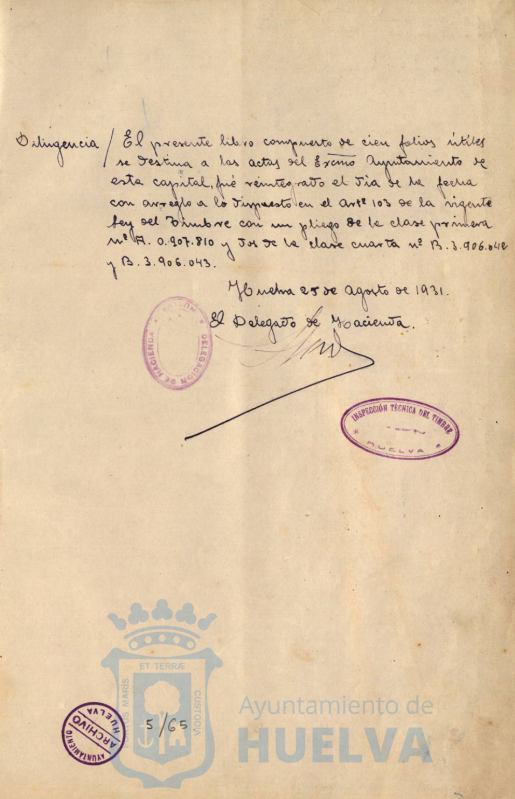 Diligencia / El presente libro compuesto de cien folios útiles
se destina a las actas del Excmo Ayuntamiento de
esta capital, fué reintegrado el dia de la fecha
con arreglo a lo dispuesto en el artº 103 de la vigente
Ley del Timbre con un pliego de la clase primera
nº A. 0.907.810 y dos de la clase cuarta nº B. 3.906.042
y B. 3.906.043.
Huelva 25 de Agosto de 1931.
El Delegado de Hacienda.
DELEGACION DE HACIENDA
HUELVA
INSPECCIÓN TÉCNICA DEL TIMBRE
HUELVA
PORTUS MARIS ET TERRÆ CUSTODIA
AYUNTAMIENTO
ARCHIVO
HUELVA
5/65
Ayuntamiento de
HUELVA